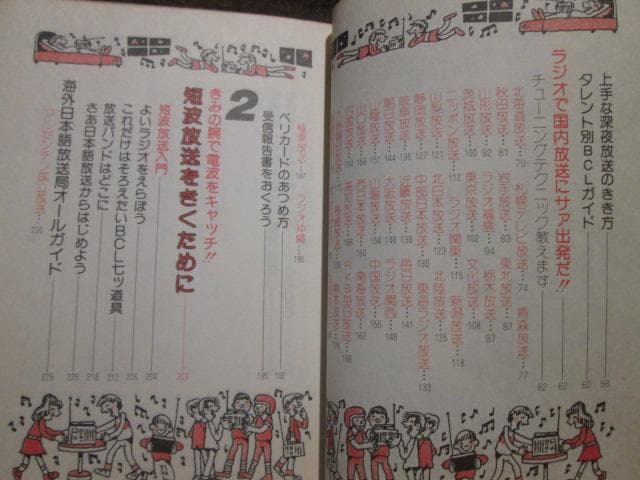 上手な深夜放送のきき方 58
タレント別BCLガイド 60
ラジオで国内放送にサァ出発だ!! 62
チューニングテクニック教えます 62
北海道放送…70 札幌テレビ放送…74 青森放送…77
秋田放送…81 岩手放送…83 東北放送…87
山形放送…92 ラジオ福島…94 栃木放送…97
茨城放送…100 東京放送…104 文化放送…108
ニッポン放送…112 ラジオ関東…115 新潟放送…118
山梨放送…121 北日本放送…123 北陸放送…125
静岡放送…127 中部日本放送…130 東海ラジオ放送…133
岐阜放送…136 近畿放送…139 毎日放送…141
朝日放送…144 大阪放送…146 ラジオ関西…148
山陽放送…154 中国放送…156
山陰放送 西日本放送…160 南海放送
高知放送 RKB毎日放送…166
極東放送…187 ラジオ沖縄…190
ベリカードのあつめ方 192
受信報告書をおくろう 195
2
きみの腕で電波をキャッチ!!
短波放送をきくために
短波放送入門 203
よいラジオをえらぼう 204
これだけはそろえたいBCL七ツ道具 206
放送バンドはどこに 212
さあ日本語放送からはじめよう 218
海外日本語放送局オールガイド 225
229